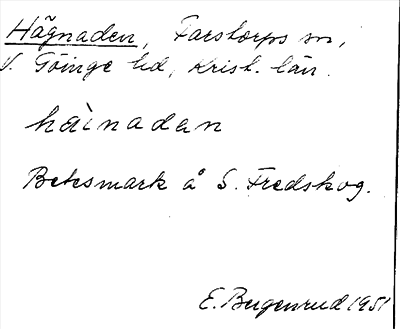 Hägnaden, Farstorps sn,
V. Göinge hd, Krist. län.
hàinadan
Betesmark å S. Fredskog.
E. Bergenrud 1951